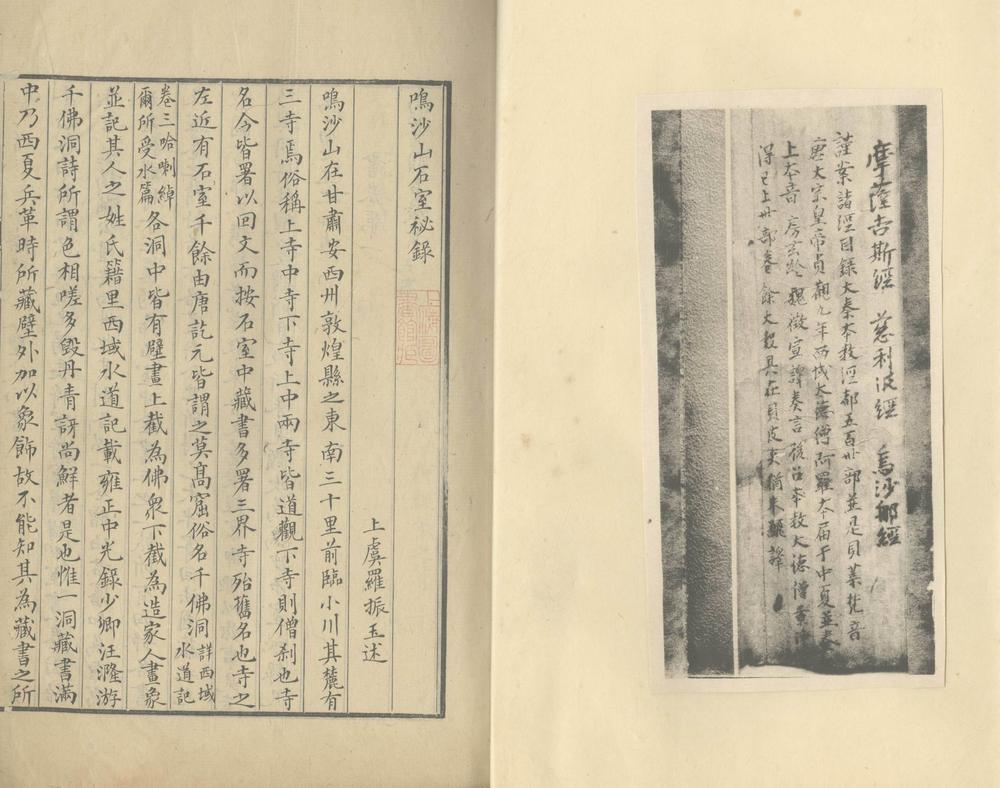 摩薩吉斯經　慈利波經　烏沙郍經
謹案諸經目錄大秦本教經都五百卅部並是貝葉梵音
唐太宗皇帝貞觀九年西域太德僧阿羅本屆于中夏並奏
上本音房玄齡魏徵宣譯奏言後召本教大德僧景淨
得已上卅部卷餘大數具在貝皮夾猶未翻譯
鳴沙山石室祕錄
上虞羅振玉述
鳴沙山在甘肅安西州敦煌縣之東南三十里前臨小川其麓有
三寺焉俗稱上寺中寺下寺上中兩寺皆道觀下寺則僧刹也寺
名今皆署以回文而按石室中藏書多署三界寺殆舊名也寺之
左近有石室千餘由唐訖元皆謂之莫高窟俗名千佛洞詳西域水道記
卷三哈喇綽爾所受水篇各洞中皆有壁畫上截為佛衆下截為造家人畫象
並記其人之姓氏籍里西域水道記載雍正中光錄少卿汪漋游
千佛洞詩所謂色相嗟多毀丹青訝尚鮮者是也惟一洞藏書滿
中乃西夏兵革時所藏壁外加以象飾故不能知其為藏書之所